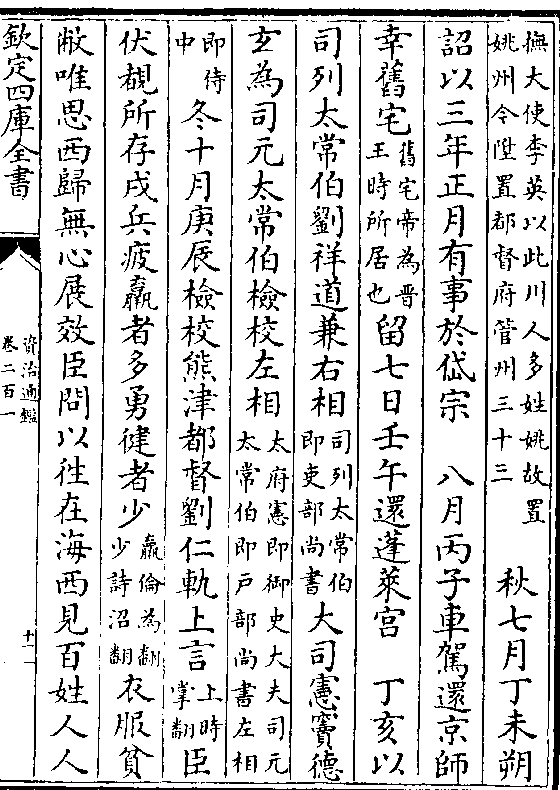 撫大使李英以此川人多姓姚故置
姚州令陞置都督府管州三十三
秋七月丁未朔
詔以三年正月有事於岱宗　八月丙子車駕還京師
幸舊宅舊宅帝為晉王時所居也留七日壬午還蓬萊宮　丁亥以
司列太常伯劉祥道兼右相司列太常伯即吏部尚書大司憲竇德
玄為司元太常伯檢校左相太府憲即御史大夫司元太常伯即戶部尚書左相
即侍中　冬十月庚辰檢校熊津都督劉仁軌上言上時掌翻臣
伏覩所存戍兵疲羸者多勇健者少羸倫為翻少詩沼翻衣服貧
敝唯思西歸無心展效臣問以往在海西見百姓人人
欽定四庫全書
資治通鑑
卷二百一